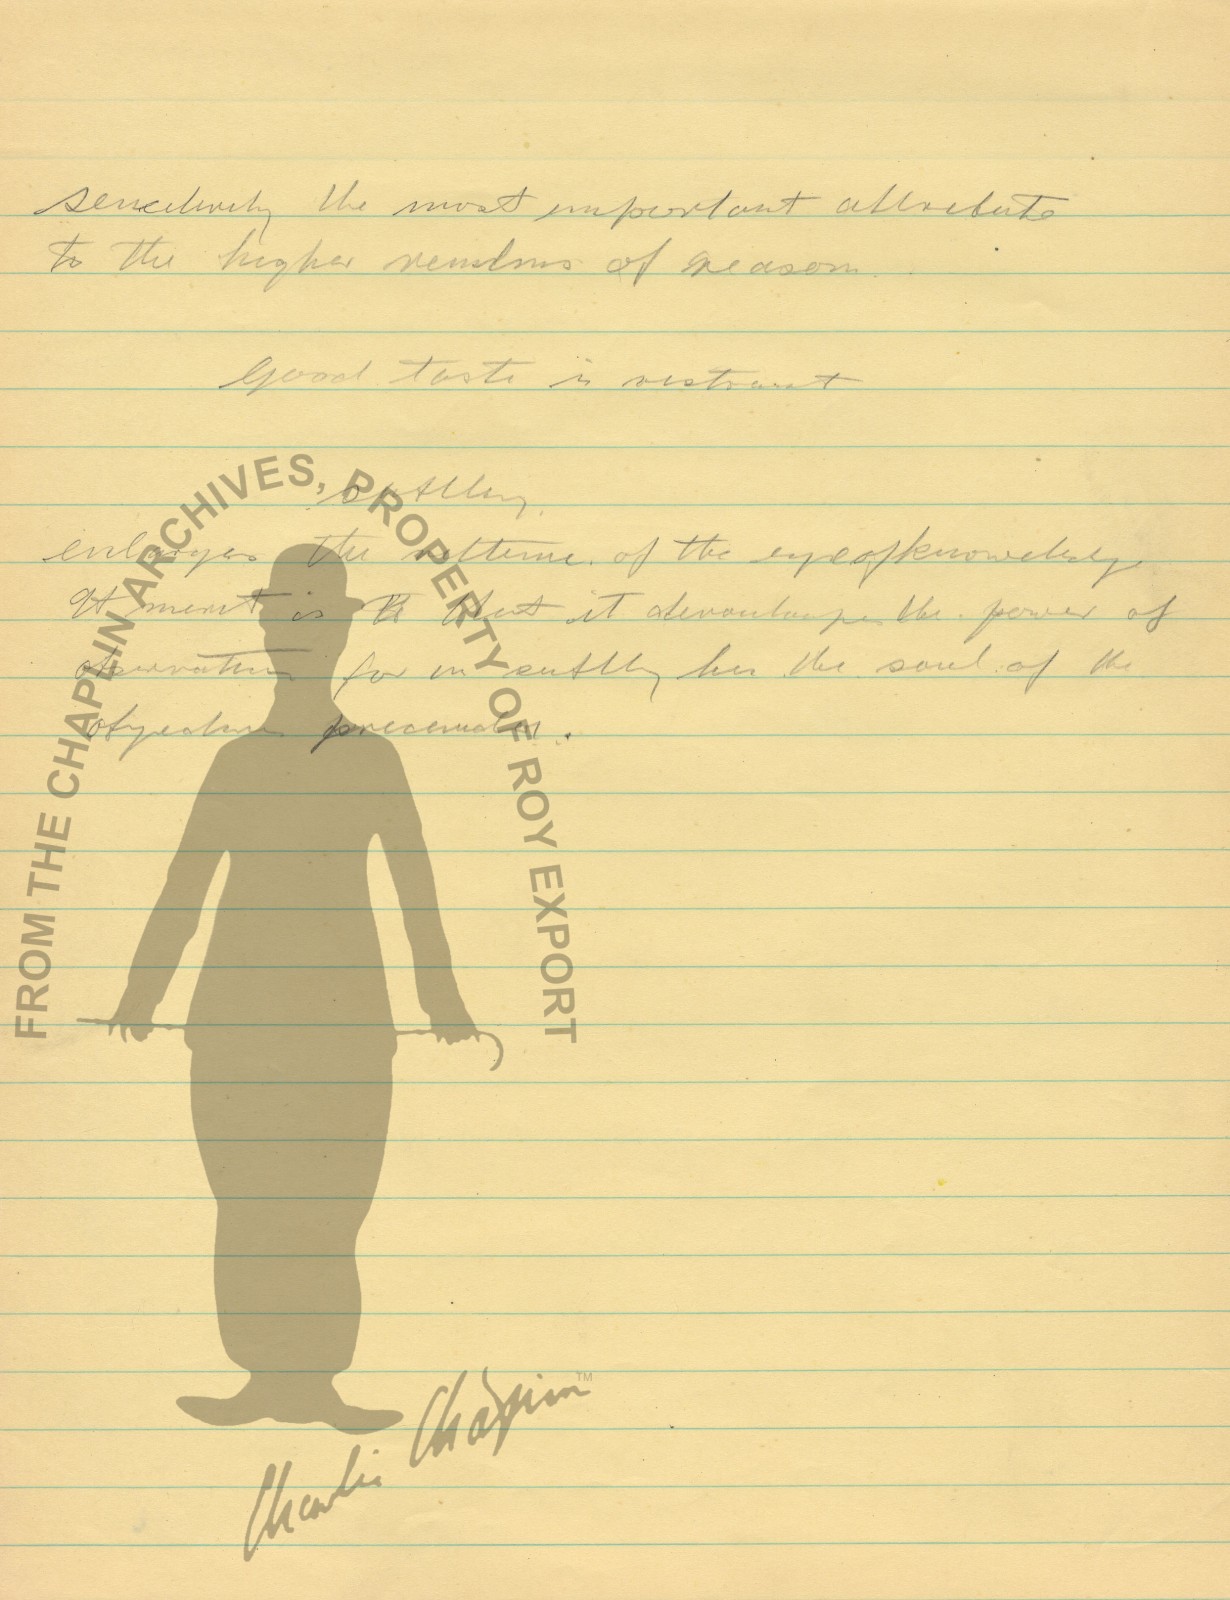 sensitivity the most important attribute
to the higher of reason.
Good taste is restraint
sutlty.
enlarges the of the eye of knoweledg
It merit is that it the power of
observation for in sutlty lies the soul of the
FROM THE CHAPLIN ARCHIVES, PROPERTY OF ROY EXPORT
Charlie Chaplin™